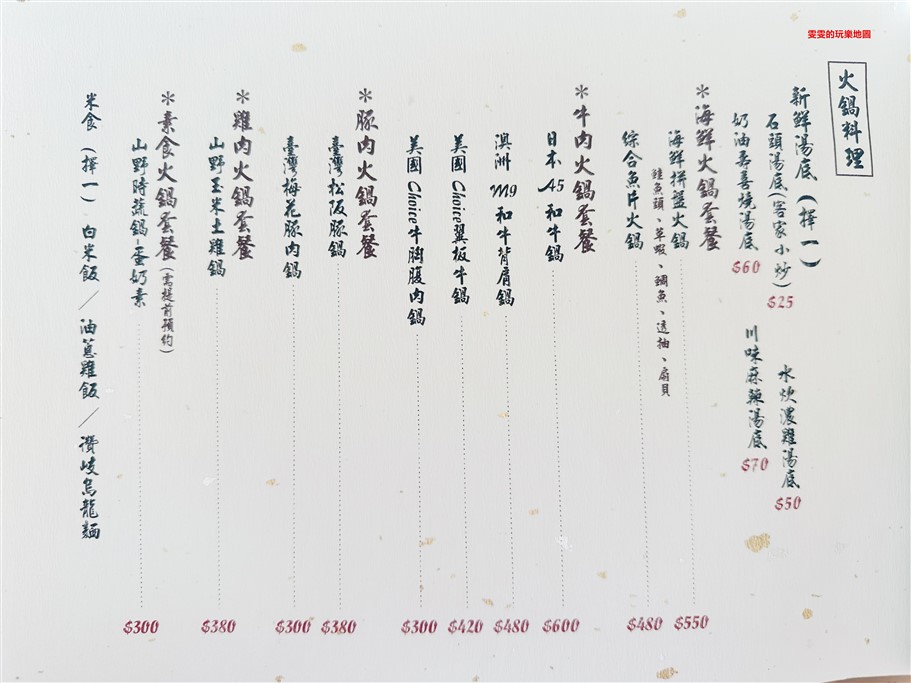 雯雯的玩樂地圖
火鍋料理
新鮮湯底(擇一)
石頭湯底(客家小炒) $25
水炊濃雞湯底 $50
奶油壽喜燒湯底 $60
川味麻辣湯底 $70
*海鮮火鍋套餐
海鮮拼盤火鍋 $550
鮭魚頭、草蝦、鯛魚、透抽、扇貝
綜合魚片火鍋 $480
*牛肉火鍋套餐
日本A5和牛鍋 $600
澳洲M9和牛背肩鍋 $480
美國Choice翼板牛鍋 $420
美國Choice牛胸腹肉鍋 $300
*豚肉火鍋套餐
臺灣松阪豚鍋 $380
臺灣梅花豚肉鍋 $300
*雞肉火鍋套餐
山野玉米土雞鍋 $380
*素食火鍋套餐(需提前預約)
山野時蔬鍋-蛋奶素 $300
米食(擇一) 白米飯/油蔥雞飯/讚岐烏龍麵